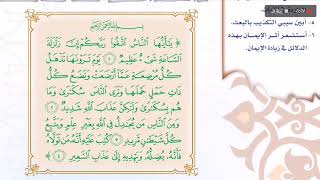 ٥- أبين سببي التكذيب بالبعث.
٦- أستشعر أثر الإيمان بهذه
الدلائل في زيادة الإيمان.
بِسْمِ ٱللَّهِ ٱلرَّحْمَٰنِ ٱلرَّحِيمِ
﴿ يَٰٓأَيُّهَا ٱلنَّاسُ ٱتَّقُوا۟ رَبَّكُمْ إِنَّ زَلْزَلَةَ
ٱلسَّاعَةِ شَىْءٌ عَظِيمٌ ١ يَوْمَ تَرَوْنَهَا تَذْهَلُ
كُلُّ مُرْضِعَةٍ عَمَّآ أَرْضَعَتْ وَتَضَعُ كُلُّ
ذَاتِ حَمْلٍ حَمْلَهَا وَتَرَى ٱلنَّاسَ سُكَٰرَىٰ وَمَا
هُم بِسُكَٰرَىٰ وَلَٰكِنَّ عَذَابَ ٱللَّهِ شَدِيدٌ ٢
وَمِنَ ٱلنَّاسِ مَن يُجَٰدِلُ فِى ٱللَّهِ بِغَيْرِ عِلْمٍ وَيَتَّبِعُ
كُلَّ شَيْطَٰنٍ مَّرِيدٍ ٣ كُتِبَ عَلَيْهِ أَنَّهُۥ مَن تَوَلَّاهُ
فَأَنَّهُۥ يُضِلُّهُۥ وَيَهْدِيهِ إِلَىٰ عَذَابِ ٱلسَّعِيرِ ٤